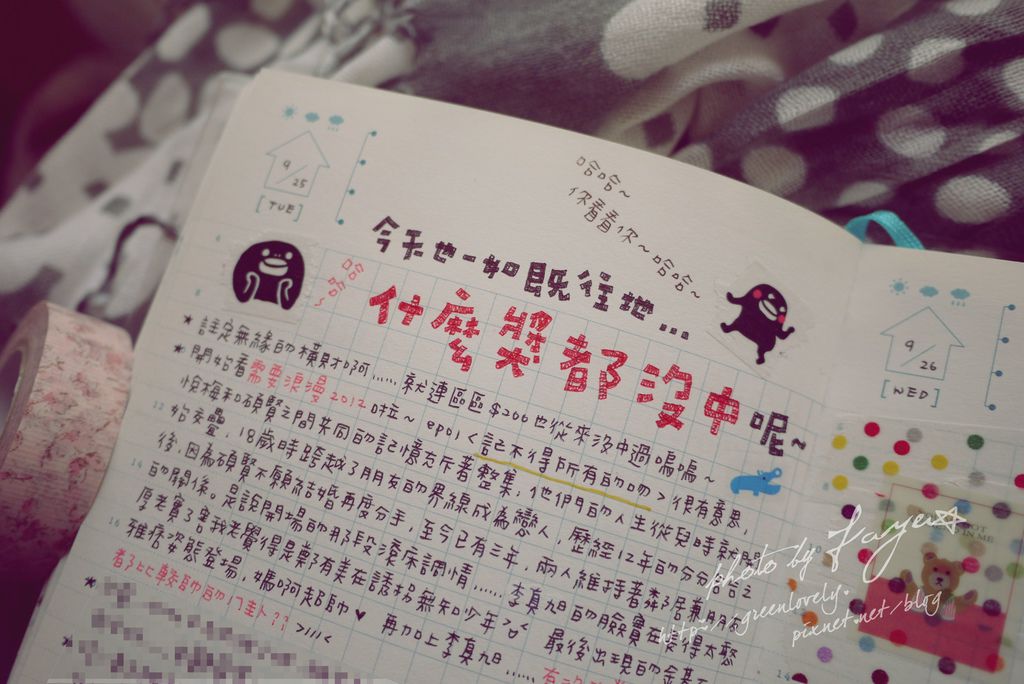 9/25
[TUE]
哈哈~
你看看你~哈哈~
今天也一如既往地...
哈哈~
什麼獎都沒中呢~
★ 註定無緣的橫財啊......就連區區$200也從來沒中過嗚嗚~
★ 開始看需要浪漫2012啦~ ep01<記不得所有的吻>很有意思,
恱梅和碩賢之間共同的記憶充斥著整集,他們的人生從兒時就開
始交疊,18歲時跨越了朋友的界線成為戀人,歷經12年的分分合合
後,因為碩賢不願結婚再度分手,至今已有三年,兩人維持著鄰居兼朋友
的關係。是說開場的那段滾床調情......
雅痞姿態登場,媽啊超帥♥ 再加上李真旭......
都比較帥的門卦?? >///<
9/26
[WED]
photo by Faye☆
http://greenlovely.
pixnet.net/blog